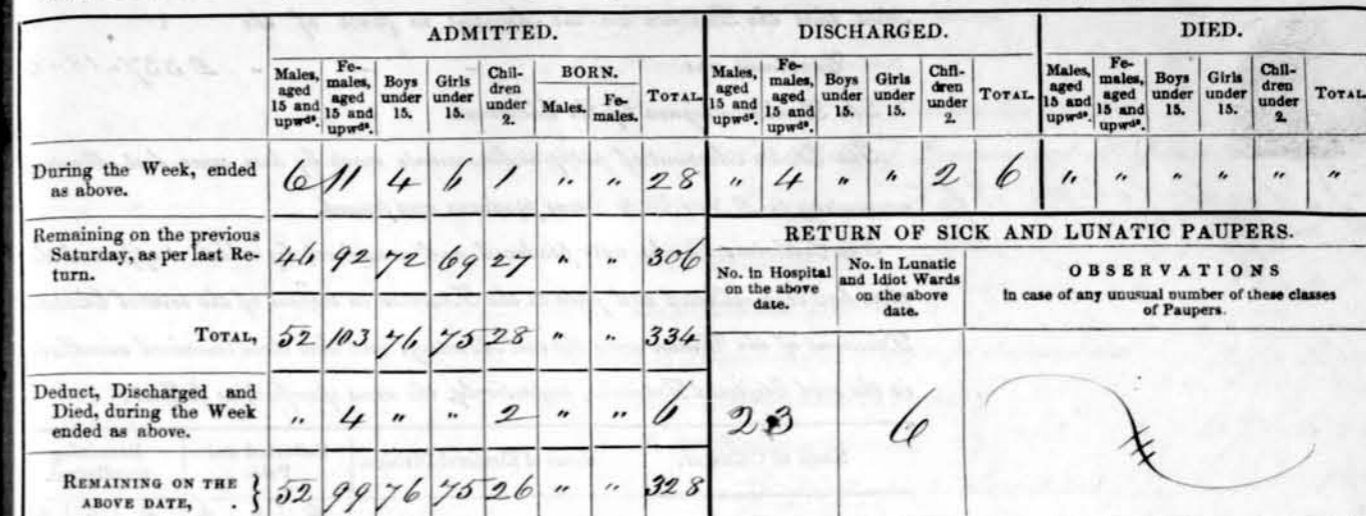 ADMITTED. DISCHARGED. DIED.
Males, aged 15 and upwds. Females, aged 15 and upwds. Boys under 15. Girls under 15. Children under 2. BORN. Males. Females. TOTAL. Males, aged 15 and upwds. Females, aged 15 and upwds. Boys under 15. Girls under 15. Children under 2. TOTAL. Males, aged 15 and upwds. Females, aged 15 and upwds. Boys under 15. Girls under 15. Children under 2. TOTAL.
During the Week, ended as above. 6 11 4 6 1 " " 28 " 4 " " 2 6 " " " " " "
Remaining on the previous Saturday, as per last Return. 46 92 72 69 27 " " 306
TOTAL, 52 103 76 75 28 " " 334
Deduct, Discharged and Died, during the Week ended as above. " 4 " " 2 " " 6
REMAINING ON THE ABOVE DATE, . } 52 99 76 75 26 " " 328
RETURN OF SICK AND LUNATIC PAUPERS.
No. in Hospital on the above date. No. in Lunatic and Idiot Wards on the above date. OBSERVATIONS in case of any unusual number of these classes of Paupers.
23 6